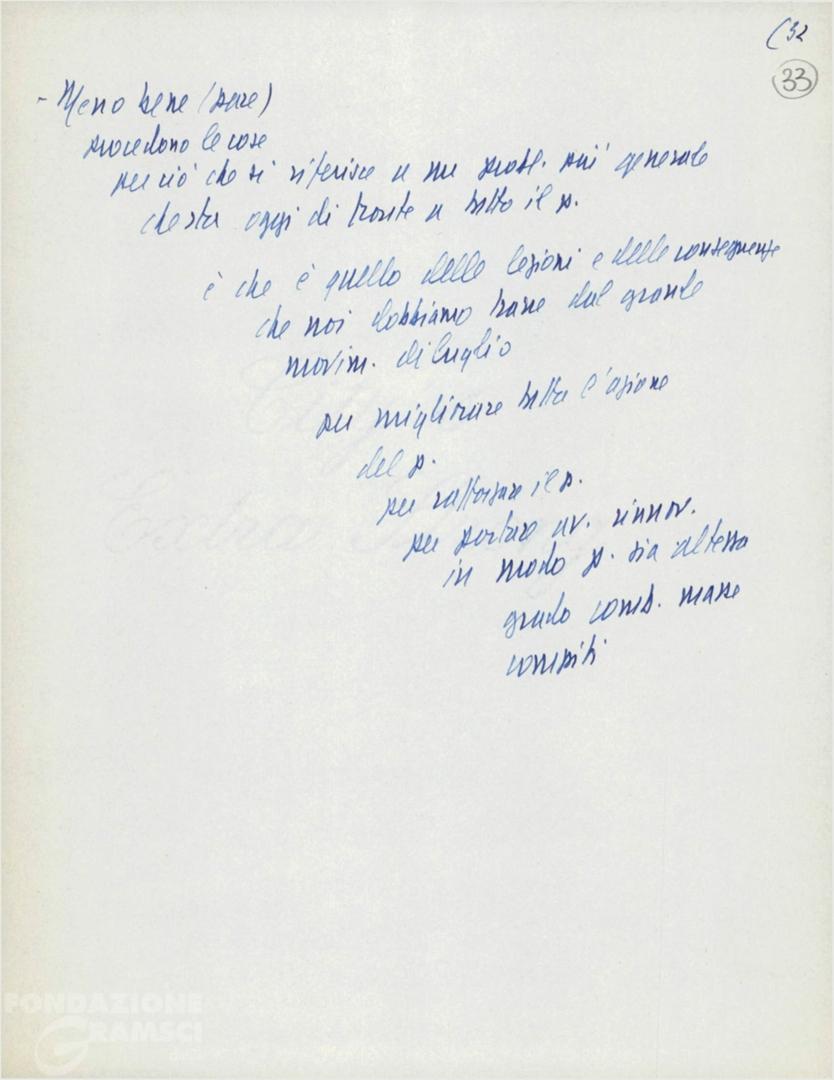 (32
33
- Meno bene (pare)
procedono le cose
per ciò che si riferisce a un probl. più generale
che sta oggi di fronte a tutto il p.
è che è quello delle lezioni e delle conseguenze
che noi dobbiamo trarre dal grande
movim. di luglio
per migliorare tutta l'azione
del p.
per rafforzare il p.
per portare av. rinnov.
in modo p. sia altezza
grado comb. masse
compiti
FONDAZIONE
GRAMSCI